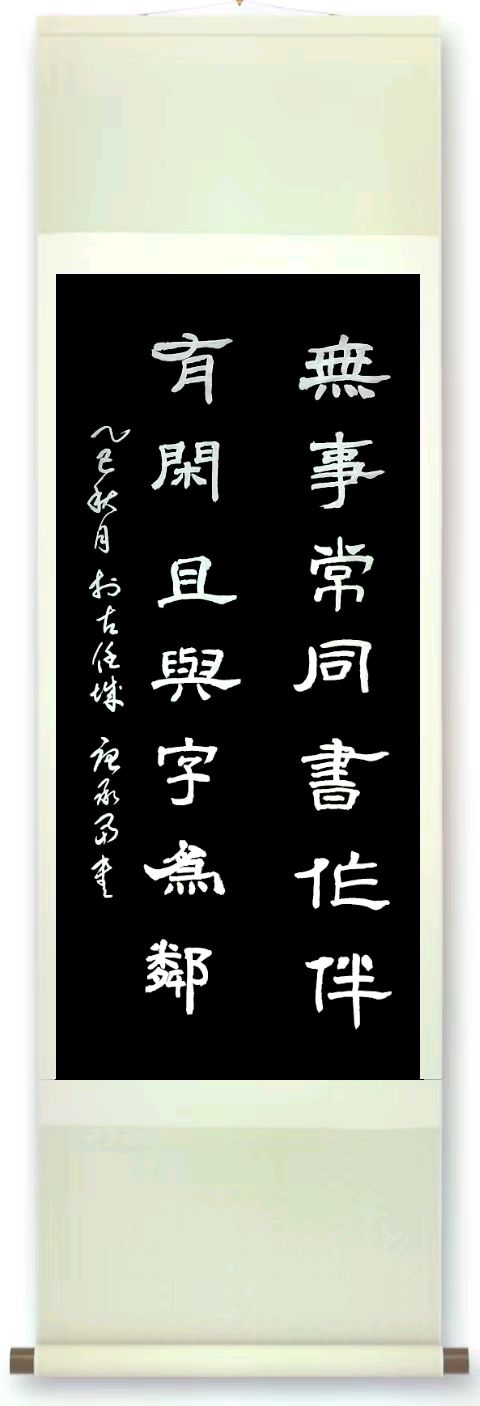 無事常同書作伴
有閑且與字為鄰
乙巳秋月於古任城